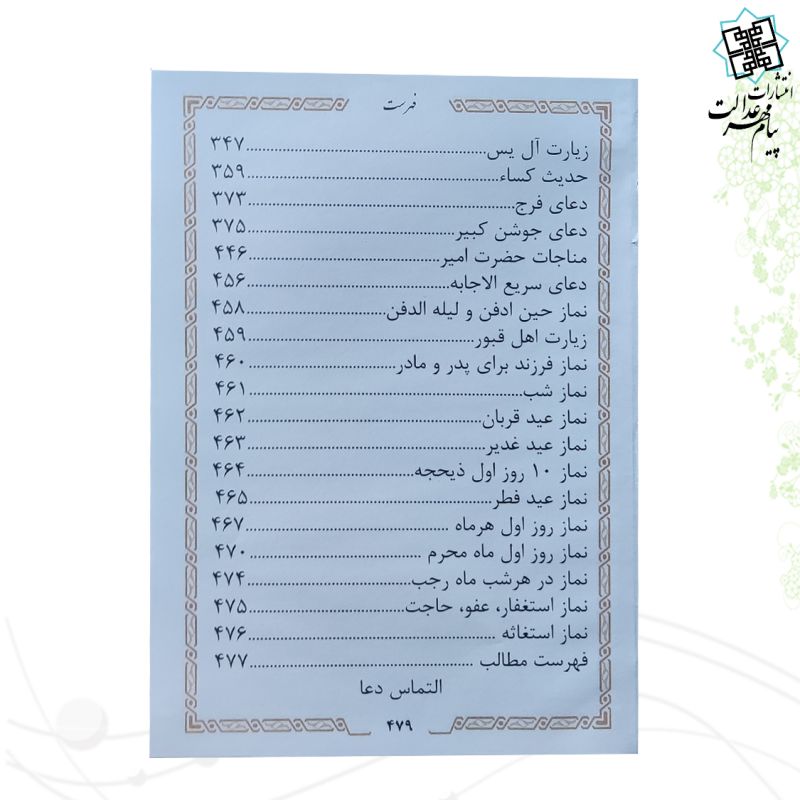 انتشارات
پیام مهر عدالت
فهرست
زیارت آل یس................................................۳۴۷
حدیث کساء..................................................۳۵۹
دعای فرج....................................................۳۷۳
دعای جوشن کبیر.........................................۳۷۵
مناجات حضرت امیر......................................۴۴۶
دعای سریع الاجابه........................................۴۵۶
نماز حین ادفن و لیله الدفن...........................۴۵۸
زیارت اهل قبور.............................................۴۵۹
نماز فرزند برای پدر و مادر.............................۴۶۰
نماز شب......................................................۴۶۱
نماز عید قربان..............................................۴۶۲
نماز عید غدیر...............................................۴۶۳
نماز ۱۰ روز اول ذیحجه................................۴۶۴
نماز عید فطر................................................۴۶۵
نماز روز اول هرماه ........................................۴۶۷
نماز روز اول ماه محرم ..................................۴۷۰
نماز در هرشب ماه رجب................................۴۷۴
نماز استغفار، عفو، حاجت..............................۴۷۵
نماز استغاثه .................................................۴۷۶
فهرست مطالب ............................................۴۷۷
التماس دعا
۴۷۹